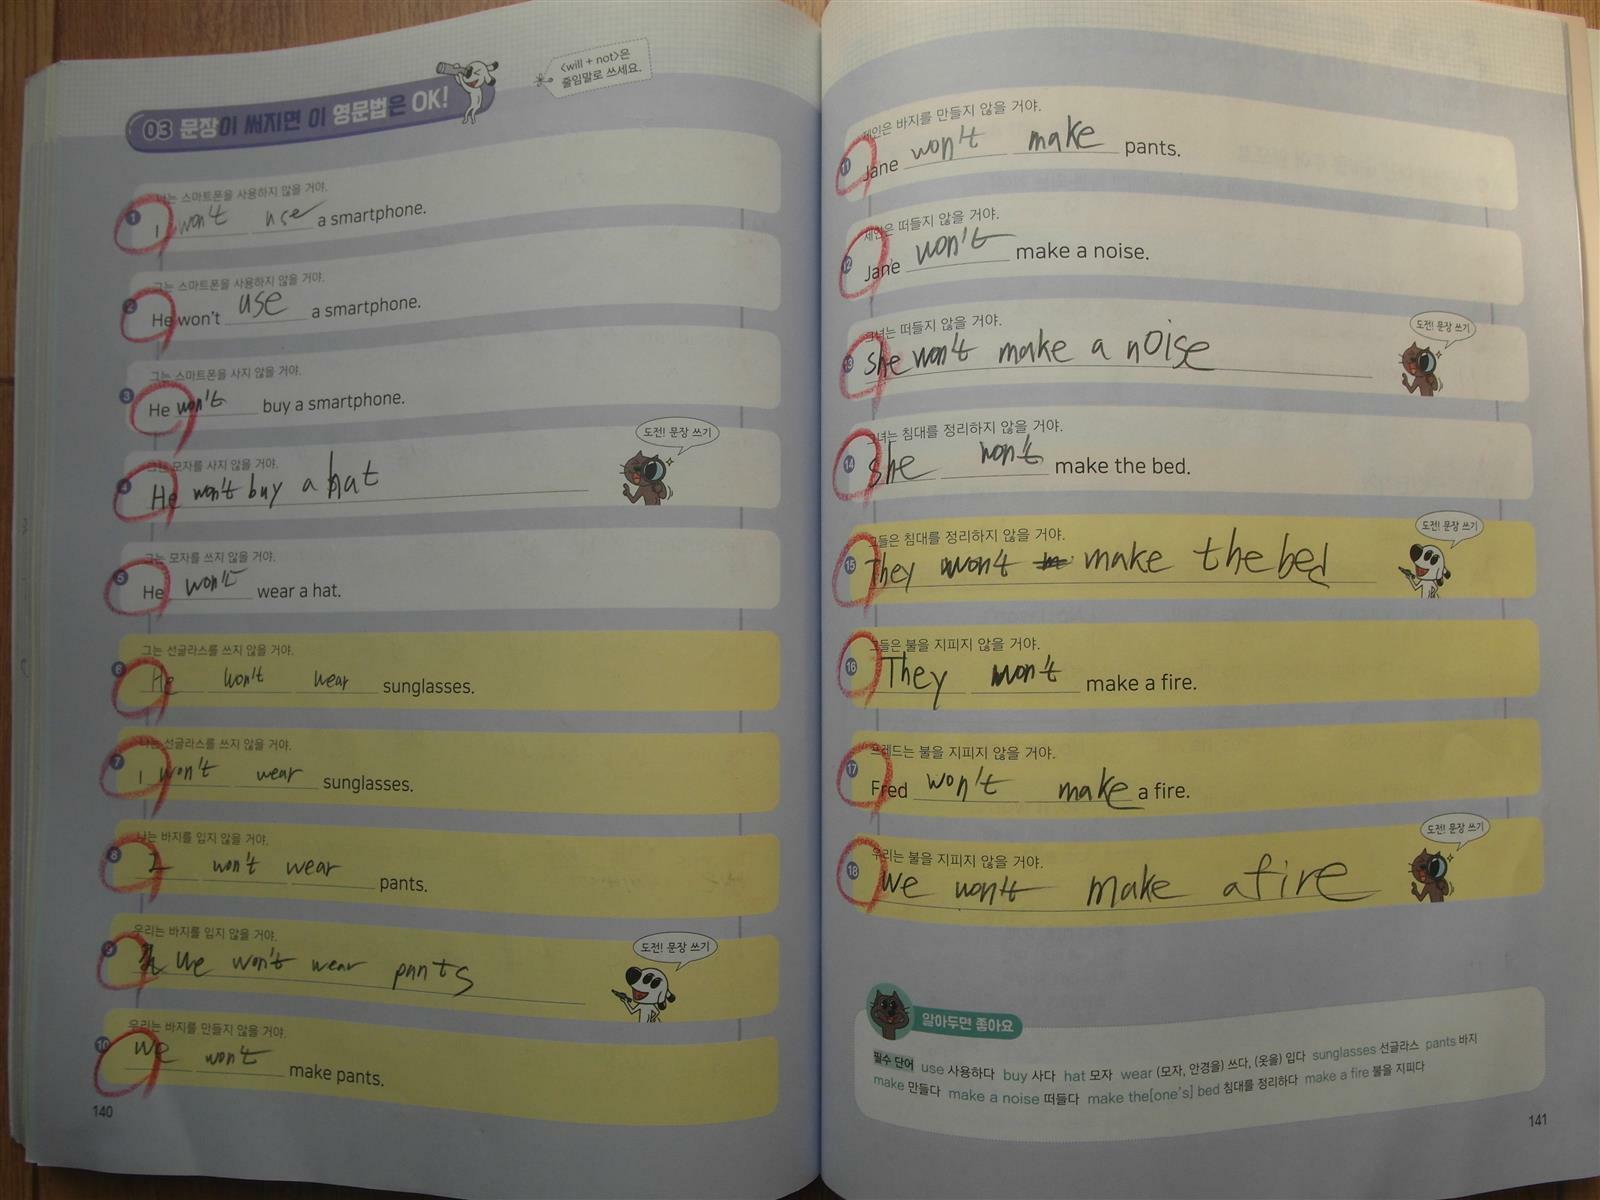 03 문장이 써지면 이 영문법은 OK!
<will + not>은
줄임말로 쓰세요.
1 나는 스마트폰을 사용하지 않을 거야.
I won't use a smartphone.
2 그는 스마트폰을 사용하지 않을 거야.
He won't use a smartphone.
3 그는 스마트폰을 사지 않을 거야.
He won't buy a smartphone.
도전! 문장 쓰기
4 그는 모자를 사지 않을 거야.
He won't buy a hat
5 그는 모자를 쓰지 않을 거야.
He won't wear a hat.
6 그는 선글라스를 쓰지 않을 거야.
He won't wear sunglasses.
7 나는 선글라스를 쓰지 않을 거야.
I won't wear sunglasses.
8 나는 바지를 입지 않을 거야.
I won't wear pants.
9 우리는 바지를 입지 않을 거야.
도전! 문장 쓰기
We won't wear pants
10 우리는 바지를 만들지 않을 거야.
We won't make pants.
140
11 제인은 바지를 만들지 않을 거야.
Jane won't make pants.
12 제인은 떠들지 않을 거야.
Jane won't make a noise.
13 그녀는 떠들지 않을 거야.
도전! 문장 쓰기
She won't make a noise
14 그녀는 침대를 정리하지 않을 거야.
She won't make the bed.
15 그들은 침대를 정리하지 않을 거야.
도전! 문장 쓰기
They won't make the bed
16 그들은 불을 지피지 않을 거야.
They won't make a fire.
17 프레드는 불을 지피지 않을 거야.
Fred won't make a fire.
18 우리는 불을 지피지 않을 거야.
도전! 문장 쓰기
We won't make a fire
알아두면 좋아요
필수 단어 use 사용하다 buy 사다 hat 모자 wear (모자, 안경을) 쓰다, (옷을) 입다 sunglasses 선글라스 pants 바지
make 만들다 make a noise 떠들다 make the[one's] bed 침대를 정리하다 make a fire 불을 지피다
141